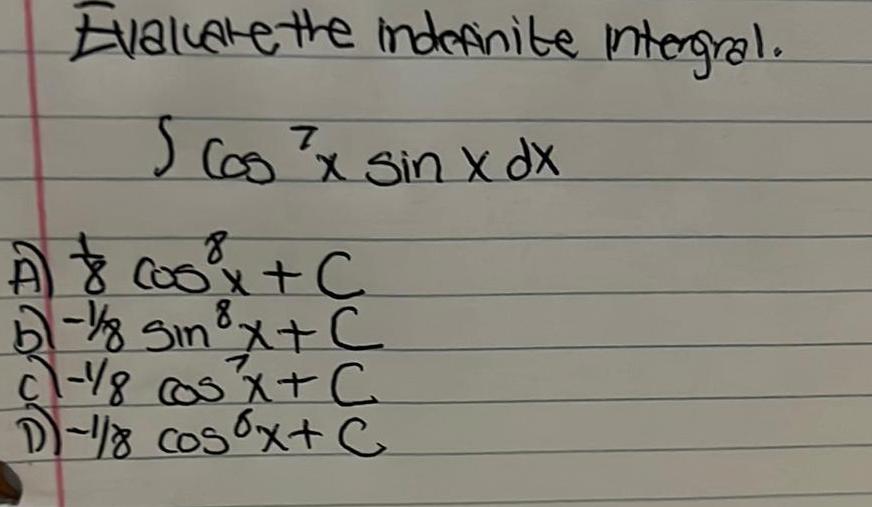 Evaluate the indefinite intergral.
∫ cos⁷x sin x dx
A) 1/8 cos⁸x + C
b) -1/8 sin⁸x + C
c) -1/8 cos⁷x + C
D) -1/8 cos⁶x + C